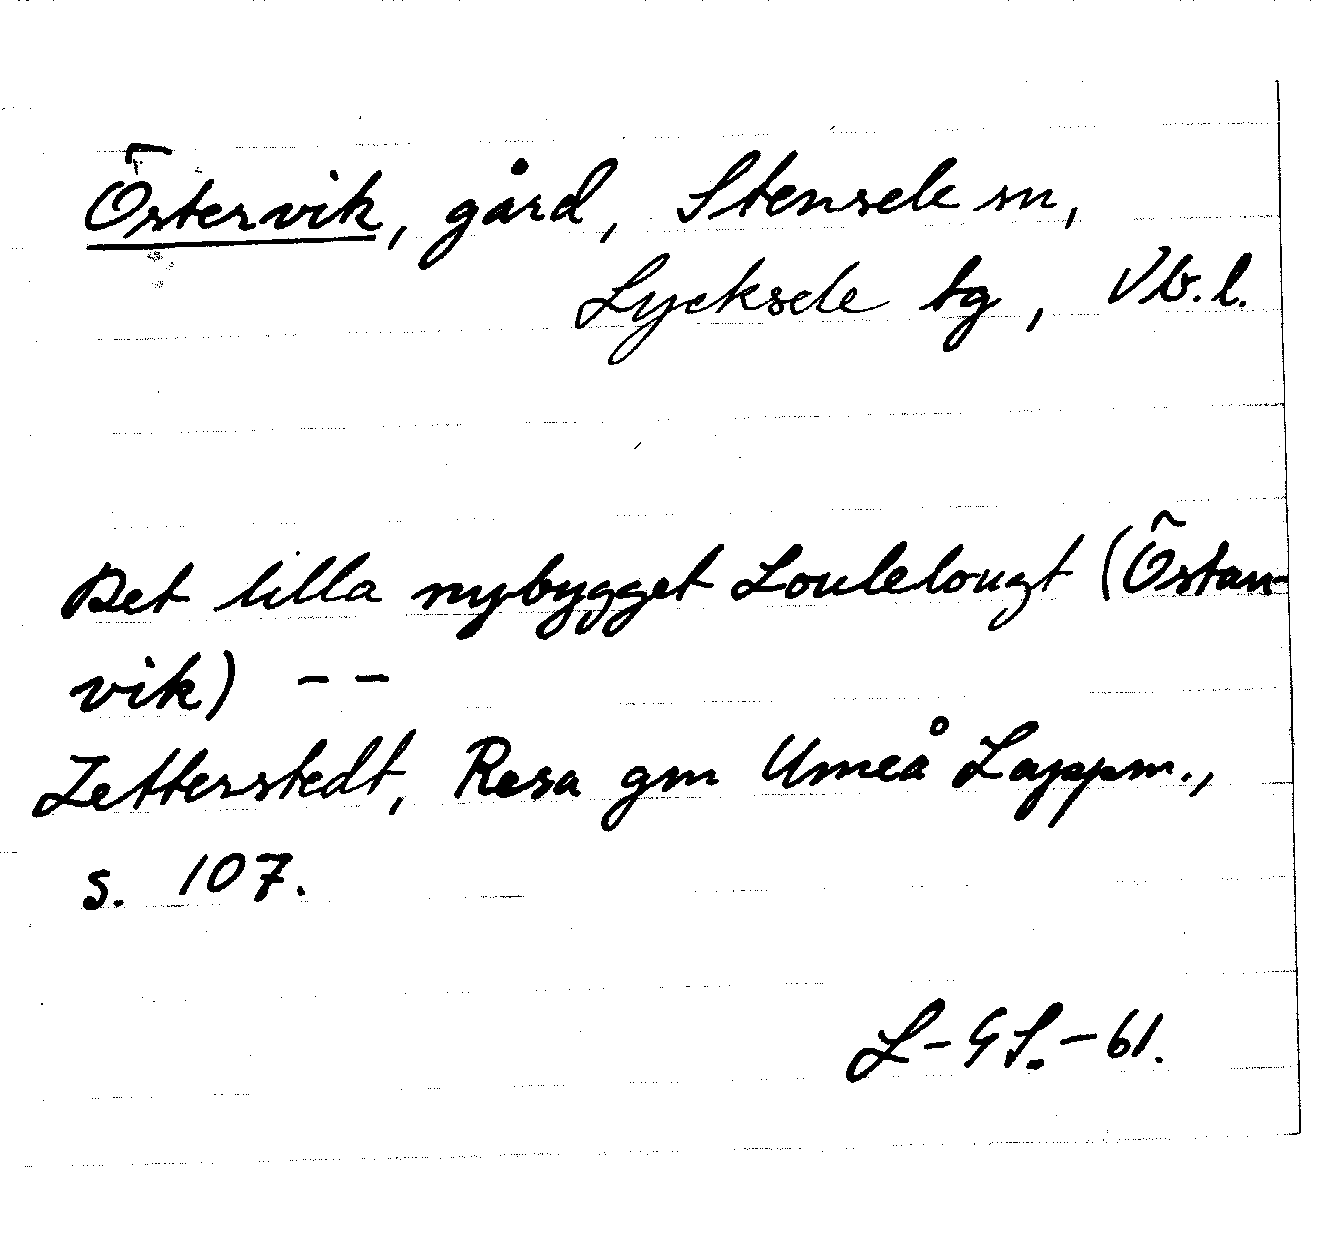 Östervik, gård, Stensele sn,
Lycksele tg, Vb. l.
Det lilla nybygget Loulelougt (Östan-
vik) --
Zetterstedt, Resa gm Umeå Lappm.,
s. 107.
L-GS.-61.